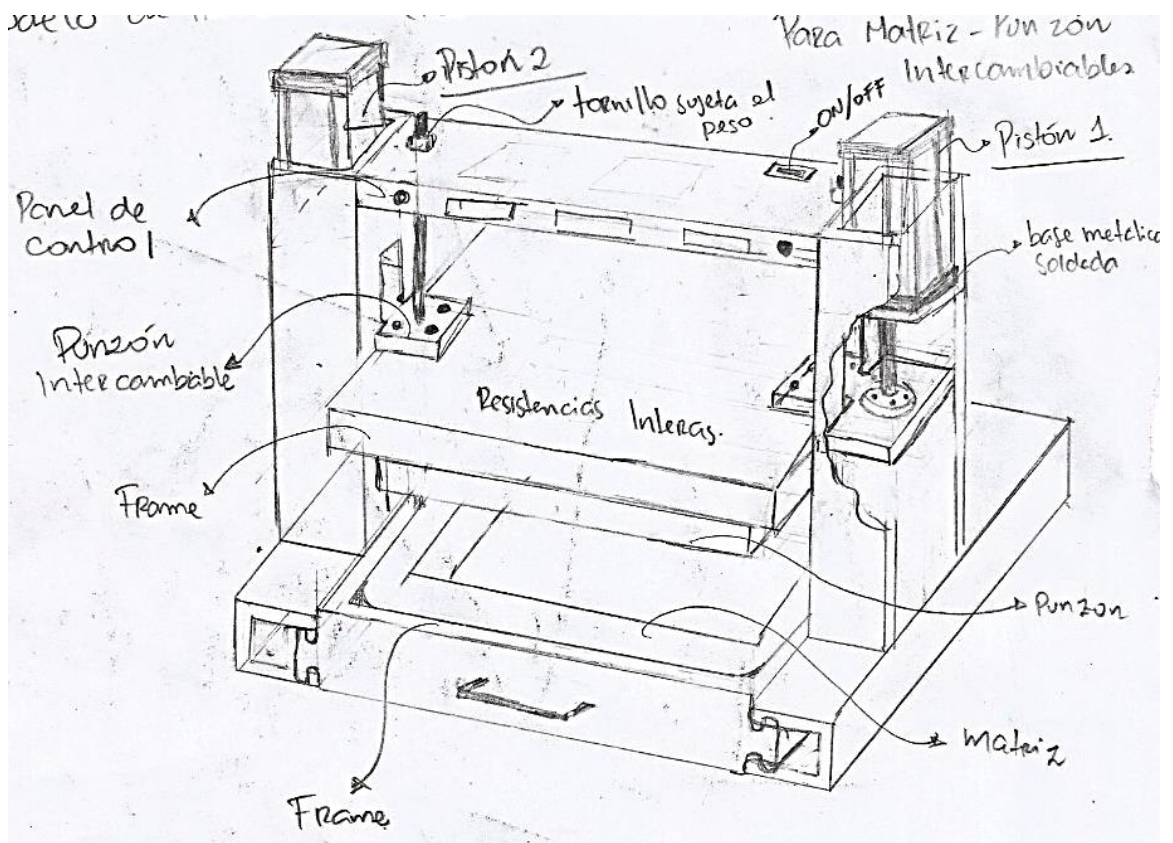 Para Matriz - Punzón
Intercambiables
Pistón 2
tornillo sujeta el
peso.
ON/OFF
Pistón 1
Panel de
control
base metálica
Soldada
Punzón
Intercambiable
Resistencias Interas.
Frame
Punzon
Matriz
Frame